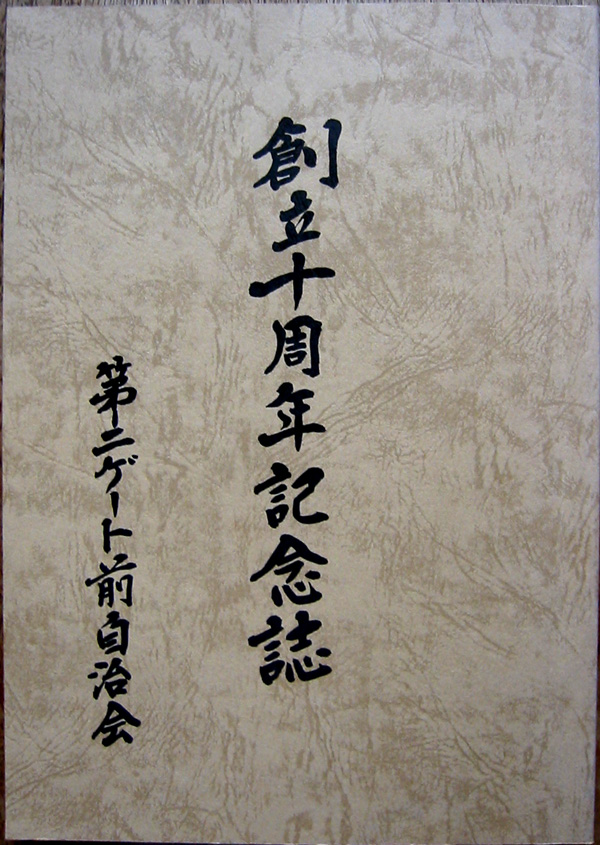 創立十周年記念誌
第二ゲート前自治会